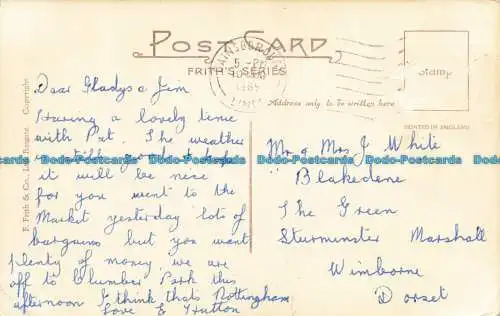 POST CARD
FRITH'S SERIES
GAINSBOROUGH
5 - PM
1965
LINCS
Address only to be written here
stamp
PRINTED IN ENGLAND
F. Frith & Co., Ltd., Reigate Copyright
Dear Gladys & Jim
Having a lovely time
with Pat. The weather
is still good & hope
it will be nice
for you went to the
Market yesterday lots of
bargains but you want
plenty of money we are
off to Clumber Park this
afternoon I think thats Nottingham
Love E Hutton
Mr & Mrs J White
"Blakedene
The Green
Sturminster Marshall
Wimborne
Dorset
Bodo-Postcards Bodo-Postcards Bodo-Postcards Bodo-Postcards